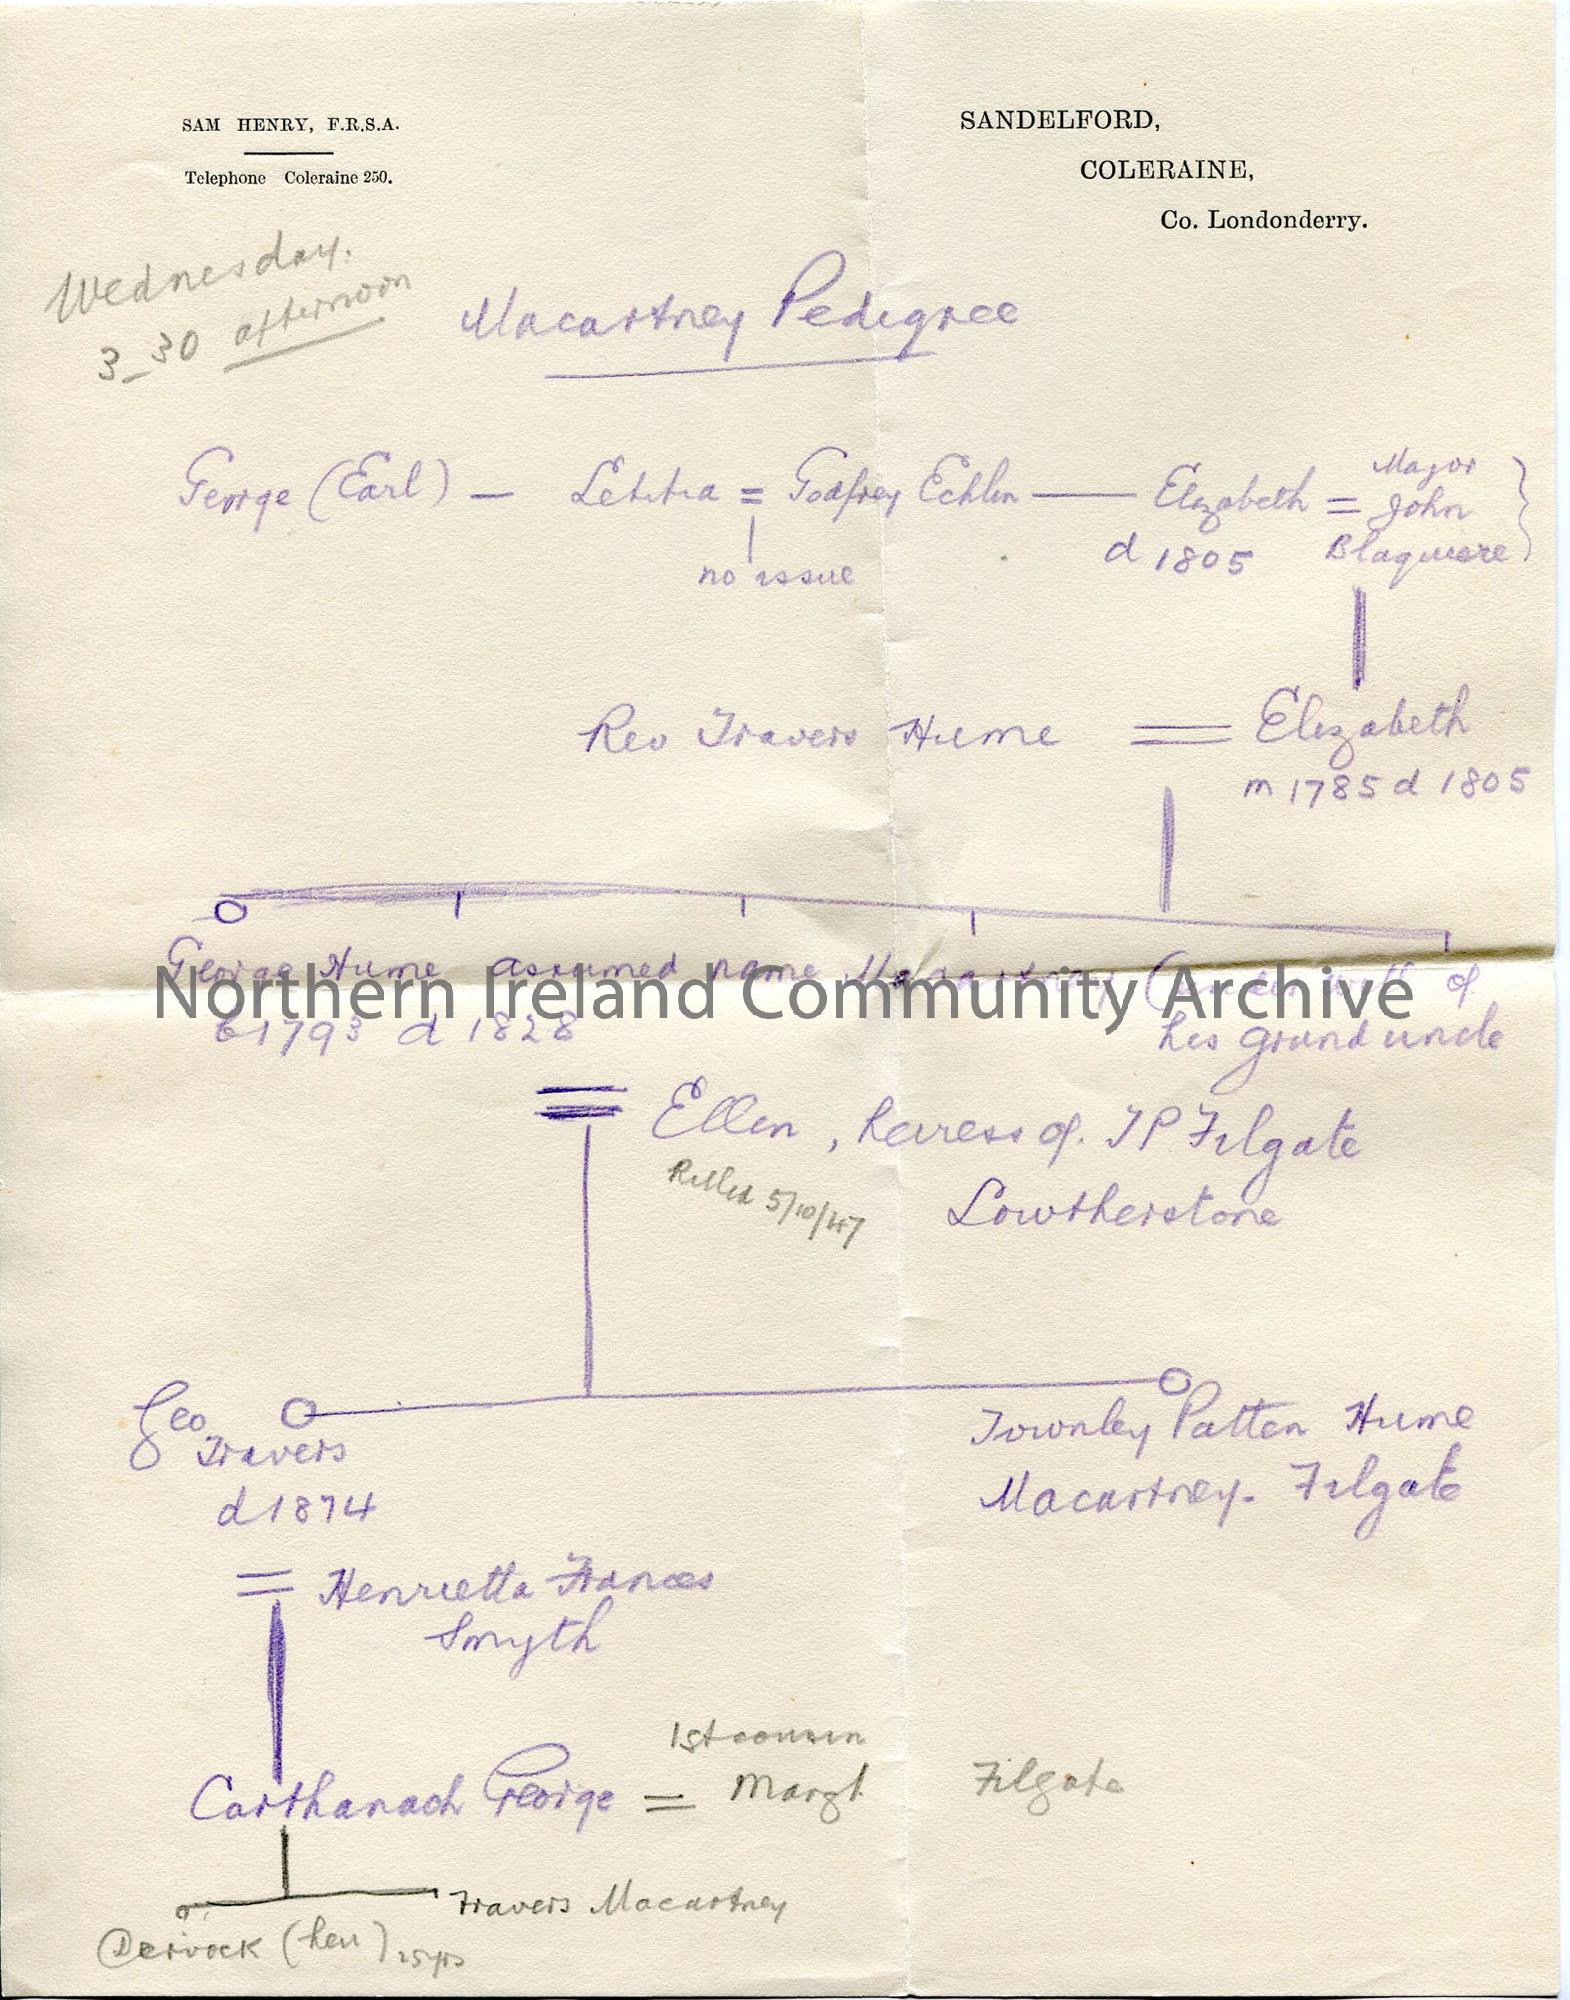 SAM HENRY, F.R.S.A.
Telephone Coleraine 250.
SANDELFORD,
COLERAINE,
Co. Londonderry.
Wednesday.
3_30 afternoon
Macartney Pedigree
George (Earl) — Letitia = Godfrey Echlin — Elizabeth = Major John Blaquiere }
d 1805
no issue
Rev Travers Hume = Elizabeth
m 1785 d 1805
George Hume assumed name Macartney (under will of
his grand uncle
b 1793 d 1828
Northern Ireland Community Archive
= Ellen, heiress of T P Filgate
Lowtherstone
Killed 5/10/47
Geo
Travers
d 1874
Townley Patten Hume
Macartney-Filgate
= Henrietta Frances
Smyth
1st cousin
Carthanach George = Margt Filgate
Travers Macartney
Dervock (heir) 25yrs